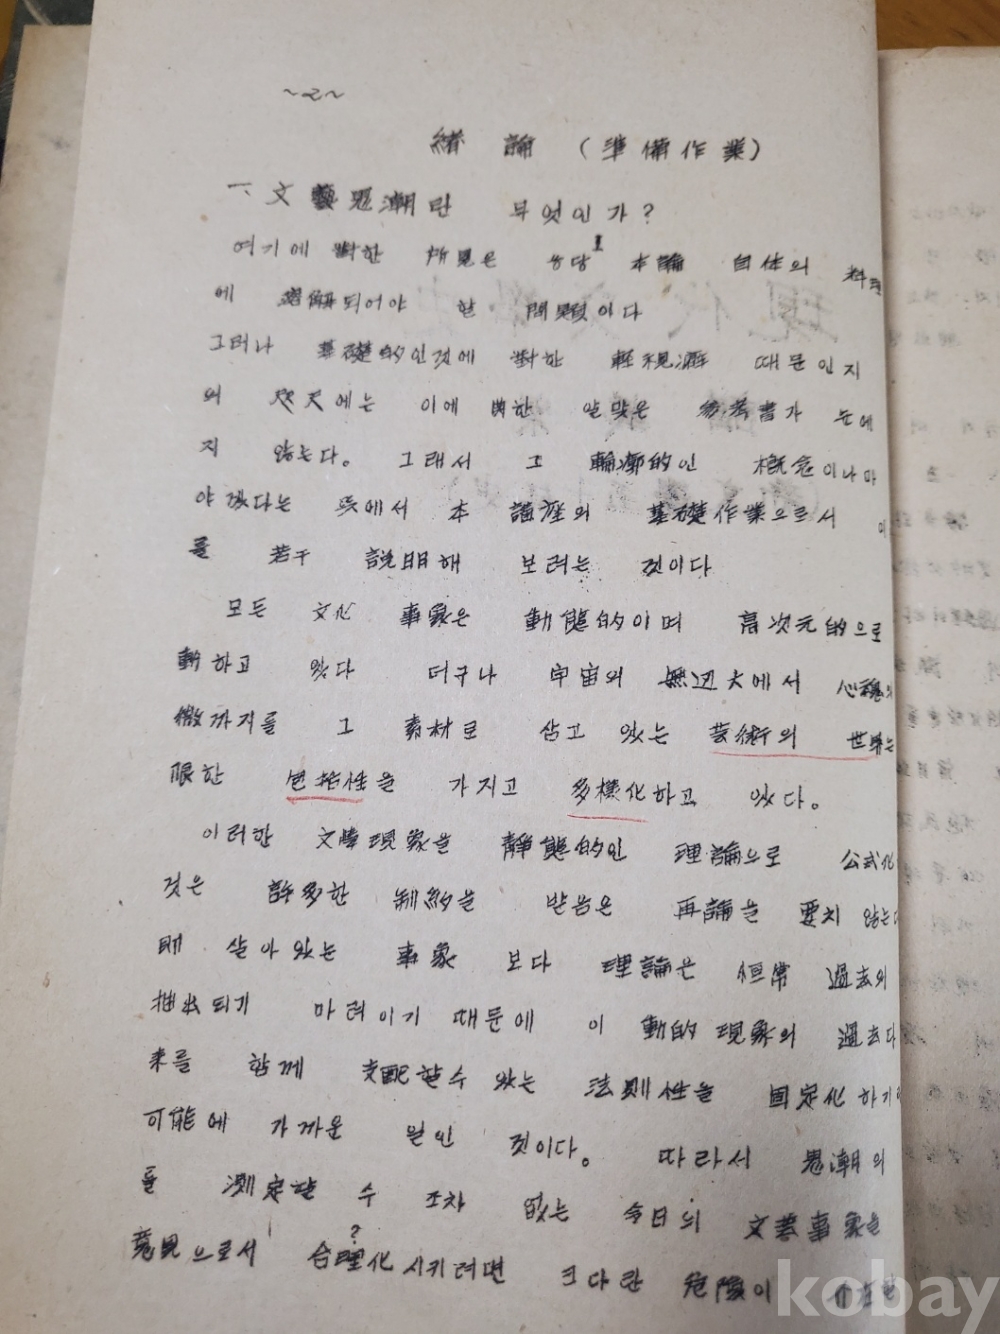 ~2~
緖論 (準備作業)
一、文藝思潮란 무엇인가?
여기에 對한 所見은 응당 本論 自体의 料理
에 溶解되어야 할 問題이다
그러나 基礎的인것에 對한 輕視癖 때문인지
의 에는 이에 備한 알맞은 參考書가 눈에
지 않는다。 그래서 그 輪廓的인 槪念이나마
야겠다는 뜻에서 本 講座의 基礎作業으로서 이
를 若干 說明해 보려는 것이다
모든 文化 事象은 動態的이며 高次元的으로
動하고 있다 더구나 宇宙의 無辺大에서 心魂의
微까지를 그 素材로 삼고 있는 芸術의 世界는
限한 包括性을 가지고 多樣化하고 있다。
이러한 文學現象을 靜態的인 理論으로 公式化
것은 許多한 制約을 받음은 再論을 要치 않는다
眀 살아있는 事象 보다 理論은 恒常 過去의
抽出되기 마련이기 때문에 이 動的現象의 過去다
來를 함께 支配할수 있는 法則性을 固定化하기
可能에 가까운 일인 것이다。 따라서 思潮의
를 測定할 수 조차 없는 今日의 文芸事象을
意見으로서 合理化시키려면 크다란 危險이
?
kobay